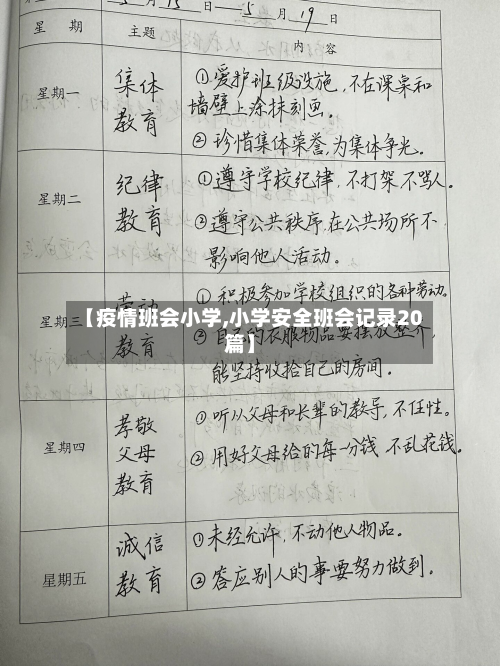 5月15日—5月19日
星期 主题 内容
星期一 集体教育 ①爱护班级设施,不在课桌和
墙壁上涂抹刻画。
②珍惜集体荣誉,为集体争光。
星期二 纪律教育 ①遵守学校纪律,不打架不骂人。
②遵守公共秩序,在公共场所不
影响他人活动。
星期三 劳动教育 ①积极参加学校组织的各种劳动。
【疫情班会小学,小学安全班会记录20
篇】
②自己的衣服物品要摆放整齐,
能坚持收拾自己的房间.
星期四 孝敬父母教育 ①听从父母和长辈的教导,不任性。
②用好父母给的每一分钱,不乱花钱。
星期五 诚信教育 ①未经允许,不动他人物品。
②答应别人的事要努力做到.